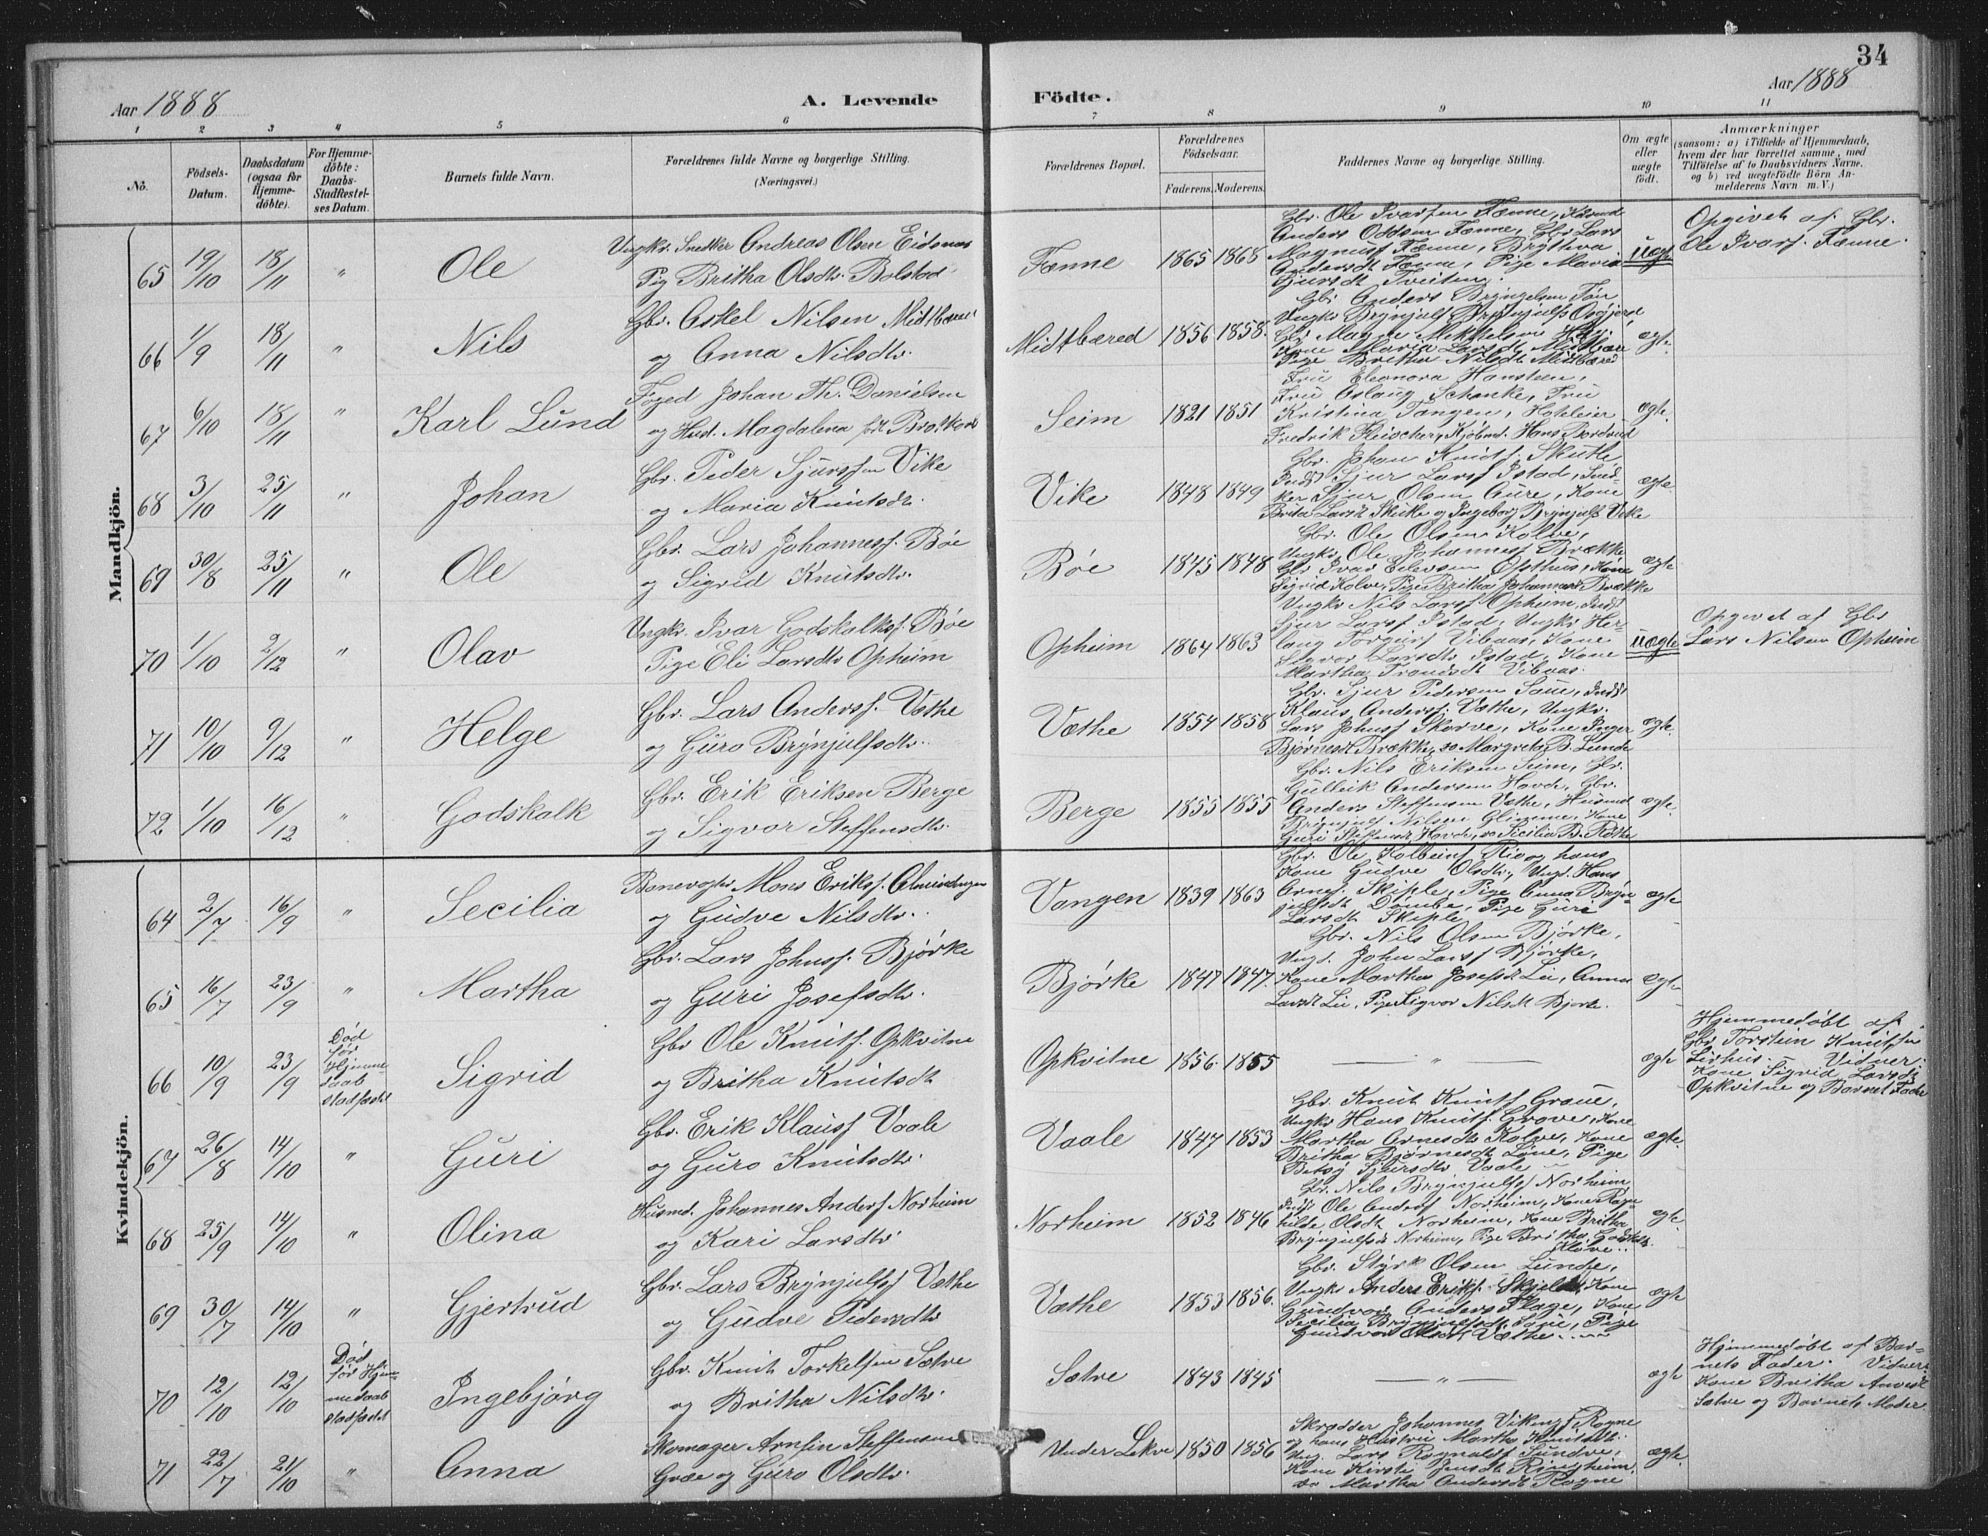 34
Aar 1888
A. Levende Födte.
Aar 1888
1 2 3 4 5 6 7 8 9 10 11
No.
Födsels-
Datum.
Daabsdatum
(ogsaa for
Hjemme-
döbte).
For Hjemme-
döbte:
Daabs-
Stadfæstel-
ses Datum.
Barnets fulde Navn.
Forældrenes fulde Navne og borgerlige Stilling.
(Næringsvei.)
Forældrenes Bopæl.
Forældrenes
Födselsaar.
Faderens. Moderens.
Faddernes Navne og borgerlige Stilling.
Om ægte
eller
uægte
födt.
Anmærkninger
(saasom: a) i Tilfælde af Hjemmedaab,
hvem der har forrettet samme, med
Tilföielse af to Daabsvidners Navne.
og b) ved uegtefödte Börn An-
melderens Navn m. V.)
Mandkjön.
65 19/10 18/11 " Ole
Ungkr. Snedker Andreas Olsen Eidsnes
Pig Britha Olsdtr. Bolstad
Fænne 1865 1868
Gbr. Ole Ivarsen Fænne, Husmd
Anders Oddsen Fænne, Gbr Lars
Magnusf Fænne, Brytheva
Andersdt Fænne, Pige Maria
Gjursdt Tveiten
uægte
Opgivet af Gbr.
Ole Ivars. Fænne.
66 1/9 18/11 " Nils
Gbr. Askel Nilsen Midtbæred
og Anna Nilsdtr.
Midtbæred 1856 1858.
Gbr Anders Bryngelsen Tøn
Ungkr Brynjulf Brynjulfs
Gbr Magne Mikkelsen
Kone Maria Larsdt
Pige Britha Nilsdt Midtbæred
ægte.
67 6/10 18/11 " Karl Lund
Foged Johan Th. Danielsen
og Hust. Magdalena født
Seim 1821 1851
Fru Eleonora Hansteen,
Fru Aslaug Schanke, Fru
Kristina Tangen, Hoteleier
Fredrik Fleischer, Kjøbmd. Hans
ægte.
68 3/10 25/11 " Johan
Gbr. Peder Sjursen Vike
og Maria Knutsdt.
Vike 1848 1849
Gbr. Johan Knutsf. Skutle
Indst Sjur Larsf Istad, Sned-
ker Sjur Olsen Aure, Kone
Brita Larsdt og Ingeborg Brynjulfs Vike
ægte
69 30/8 25/11 " Ole
Gbr. Lars Johannesf. Bøe
og Sigrid Knutsdtr.
Bøe 1845 1848
Gbr. Ole Olsen Kolve,
Ungkr. Ole Johannesf Brække
Gbr Ivar Eilevsen Kone
Sigrid Kolve, Pige Britha Johannesdt Brække
ægte
70 1/10 2/12 " Olav
Ungkr. Ivar Godskalksf. Bøe
Pige Eli Larsdtr Opheim
Opheim 1864 1863
Ungkr Nils Larsf Opheim, Indst
Sjur Larsf Istad, Ungkr Her-
laug Torgeirs Vibaas, Kone
Larsdtr Istad, Kone
Martha Vibaas.
uægte
Opgivet af Gbr
Lars Nilsen Opheim
71 10/10 9/12 " Helge
Gbr. Lars Andersf. Væthe
og Guro Brynjulfsdtr.
Væthe 1854 1858
Gbr. Sjur Pedersen Saue, Indst
Klaus Andersf. Væthe, Ungkr.
Lars Johnsf Skorve, Kone Inger
Bjørnesdt Brække, Margreta B. Lunde
ægte.
72 1/10 16/12 " Godskalk
Gbr. Erik Eriksen Berge
og Sigvor Steffensdtr.
Berge 1855 1855
Gbr. Nils Eriksen Seim, Gbr.
Gulleik Andersen Hovde, Gbr.
Anders Steffensen Væthe, Husmd
Brynjulf Nilsen Glimme, Kone
Guri Steffensdt Hovde, Cecilia
ægte.
Kvindekjön.
64 2/7 16/9 " Secilia
Banevogter Mons Eriksf. Almindingen
og Gudve Nilsdtr.
Vangen 1839 1863
Gbr. Ole Kolbeinsf Rio og hans
Kone Gudve Olsdtr, Ungk. Hans
Arnesf. Skiple, Pige Anna Bryn-
julfsdt Dømbe, Pige Guri
Larsdt Skiple
ægte
65 16/7 23/9 " Martha
Gbr. Lars Johnsf. Bjørke
og Guri Josefsdtr.
Bjørke 1847 1847.
Gbr. Nils Olsen Bjørke,
Ungk. John Larsf Bjørke,
Kone Martha Josefsdt Lei, Anna
Larsdt Lei, Pige Sigvor Nilsdt Bjørke.
ægte
66 10/9 23/9
Död
før
Hjemme
daab
stadfæstet
Sigrid
Gbr Ole Knutsf. Opkvitne
og Britha Knutsdt
Opkvitne 1856. 1855
— " —
ægte
Hjemmedøbt af
Gbr Torstein Knutsen
Lirhus. Vidner
Kone Sigrid Larsdt
Opkvitne og Barnets Fader
67 26/8 14/10 " Guri
Gbr. Erik Klausf Vaale
og Guro Knutsdtr.
Vaale 1847 1853
Gbr. Knut Knutsf Graue,
Ungkr Hans Knutsf. Grove, Kone
Martha Arnesdtr Kolve, Kone
Britha Bjørnesdt Løne, Pige
Betsy Sjursdtr Vaale
ægte.
68 25/9 14/10 " Olina
Husmd. Johannes Andersf Norheim
og Kari Larsdtr
Norheim 1852 1846
Gbr. Nils Brynjulfsf Norheim,
Indst Ole Andersf Norheim, Kone Ragn-
hilde Olsdt Norheim, Kone Britha
Brynjulfsdt Norheim, Pige Britha
ægte.
69 30/7 14/10 " Gjertrud
Gbr. Lars Brynjulfsf Væthe
og Gudve Pedersdtr
Væthe 1853 1856.
Gbr. Styrk Olsen Lunde,
Ungk Anders Eriksf. Kone
Gundvor Anders Flage, Kone
Secilia Saue, Pige
Gundvor Olsdt Væthe
ægte
70 12/10 12/10
Död
før Hjem-
medaab
stadfæstet
Ingebjørg
Gbr. Knut Torkelsen Sætre
og Britha Nilsdtr.
Sætre 1843 1845
— " —
ægte
Hjemmedøbt af Bar-
nets Fader. Vidner
Kone Britha
Sætre og Barnets Moder
71 22/7 21/10 " Anna
Skomager Arnfin Steffensen
Græe og Guro Olsdtr.
Under Lekve 1850 1856
Skrædder Johannes Vikingsf Rogne
og hans Hustru Martha Knutsdtr.
Ung. Lars Ragnaldsf Sundve,
Kone Kirsti Jensdt Ringheim,
Martha Andersdt Rogne
ægte.